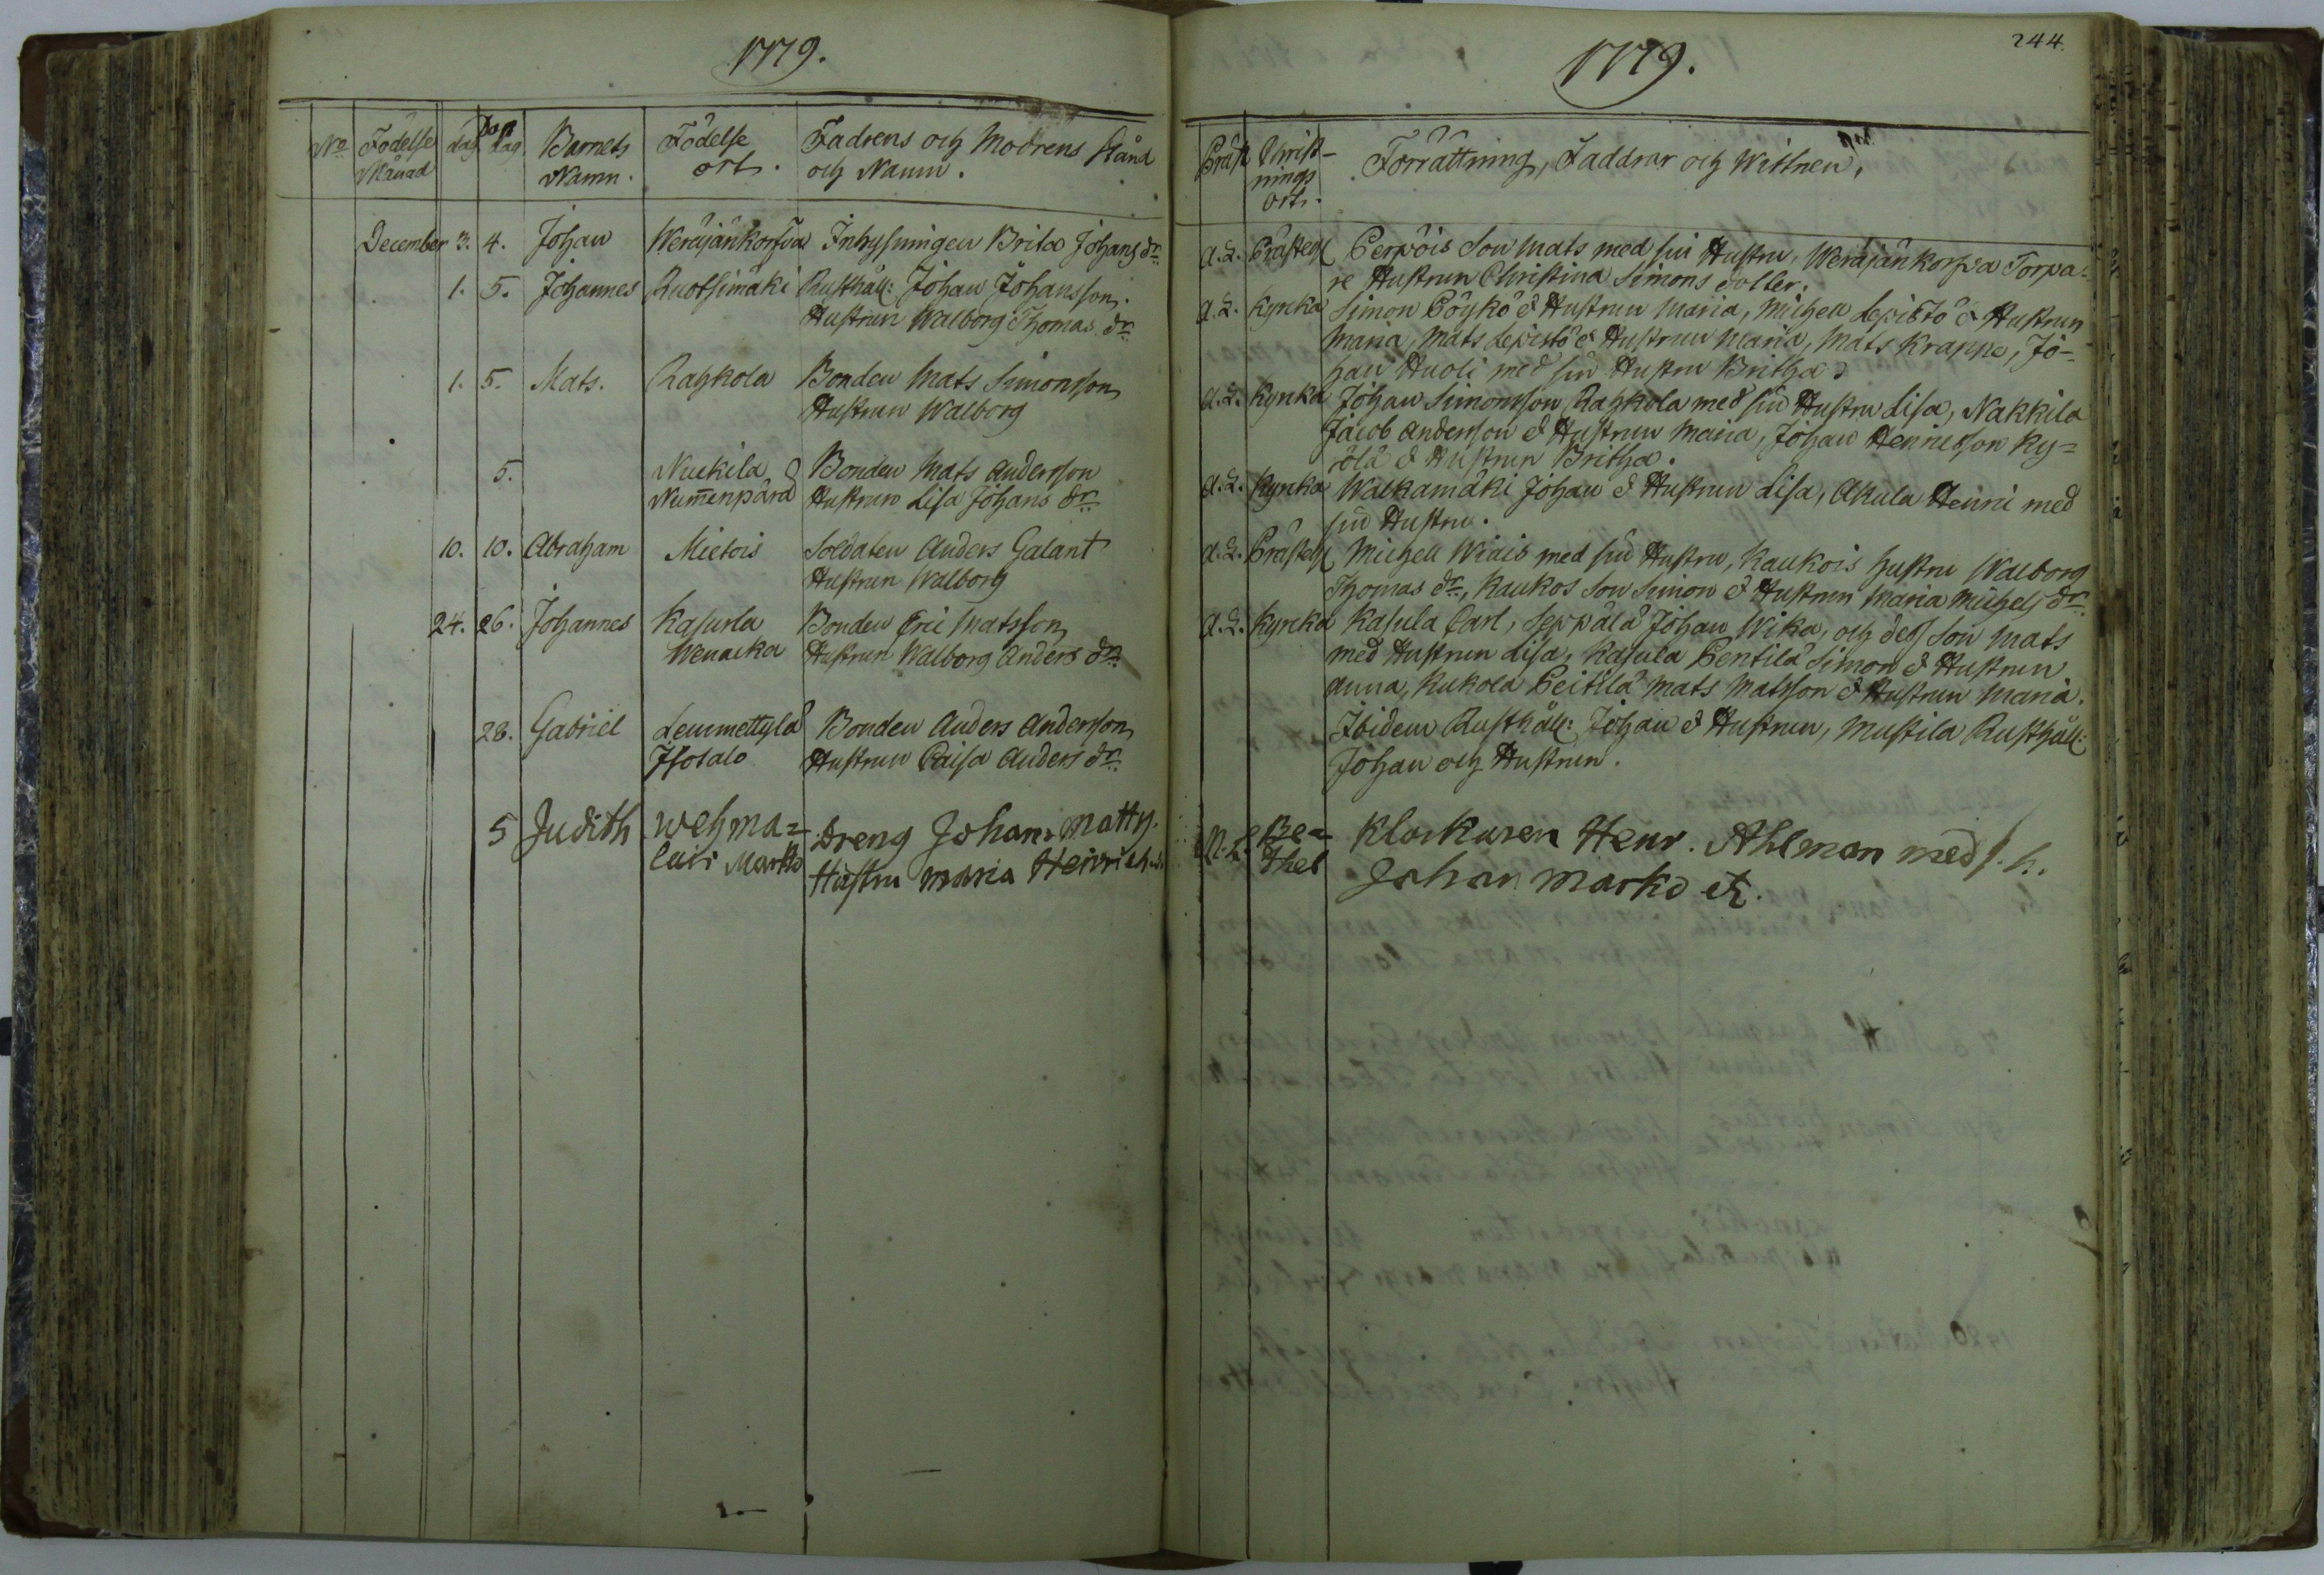 1779.
No Födelse Månad dag Dop dag Barnets Namn. Födelse ort. Fadrens och Modrens stånd och Namn.
December 3. 4. Johan Weräjänkorfva Inhysningen Brita Johans dr.
1. 5. Johannes Ruotsimäki Rusthåll: Johan Johansson.
Hustrun Walborg Thomas dr.
1. 5. Mats. Rahkola Bonden Mats Simonsson
Hustrun Walborg
5. Nuckila Bonden Mats Andersson
Nummenpärä Hustrun Lisa Johans dr.
10. 10. Abraham Mietois Soldaten Anders Galant
Hustrun Walborg
24. 26. Johannes Kasurla Bonden Eric Matsson
Hustrun Walborg Anders dr.
28. Gabriel Lemmettylä Bonden Anders Andersson
Isotalo Hustrun Caisa Anders dr.
5 Judith Wehma=
Dreng Johan Matts.
Marko Hustru Maria Heinrichs
1779.
244.
Präst Christ-
nings
ort. Förrättning, Faddrar och Wittnen,
A. L. Prästeg Perpöis Son Mats med sin Hustru, Weräjänkorpva Torpa-
re Hustrun Christina Simons dotter.
A. L. Kyrka Simon Pöykö & Hustrun Maria, Michell Lepistö & Hustrun
Maria, Mats Lepistö & Hustrun Maria, Mats Krappe, Jo-
han Huoli med sin Hustru Britha
A. L. Kyrka Johan Simonsson Rahkola med sin Hustru Lisa, Nakkila
Jacob Andersson & Hustrun Maria, Johan Hennesson Ky=
rölä & Hustrun Britha.
A. L. Kyrka Walkamäki Johan & Hustrun Lisa, Akula Henric med
sin Hustru.
A. L. Prästeg Michell Wiais med sin Hustru, Kaukois hustru Walborg
Thomas dr., Kaukos Son Simon & Hustrun Maria Michels dr.
A. L. Kyrcka Kasula Carl, Seppälä Johan Wika, och dess Son Mats
med Hustrun Lisa, Kasula Pentilä Simon & Hustrun
Anna, Kukola Peitilä Mats Matsson & Hustrun Maria.
Ibidem Rusthåll: Johan & Hustrun, Mustila Rusthåll:
Johan och Hustrun.
Be=
thel Klockaren Henr. Ahlman med s. h.
Johan Marko etc.